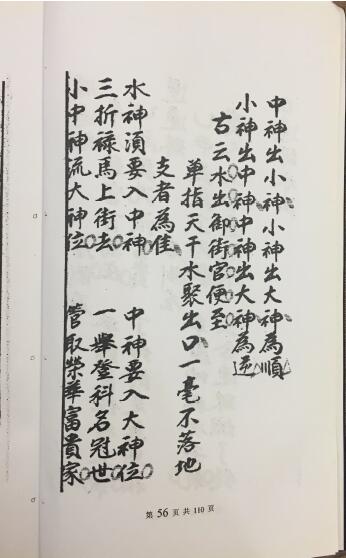 中神出小神小神出大神為順
小神出中神中神出大神為逆
古云水出御街官便至
單指天干水聚出口一毫不落地
支者為佳
水神須要入中神 中神要入大神位
三折祿馬上街去 一舉登科名冠世
小中神流大神位 管取榮華富貴家
第 56 頁 共 110 頁